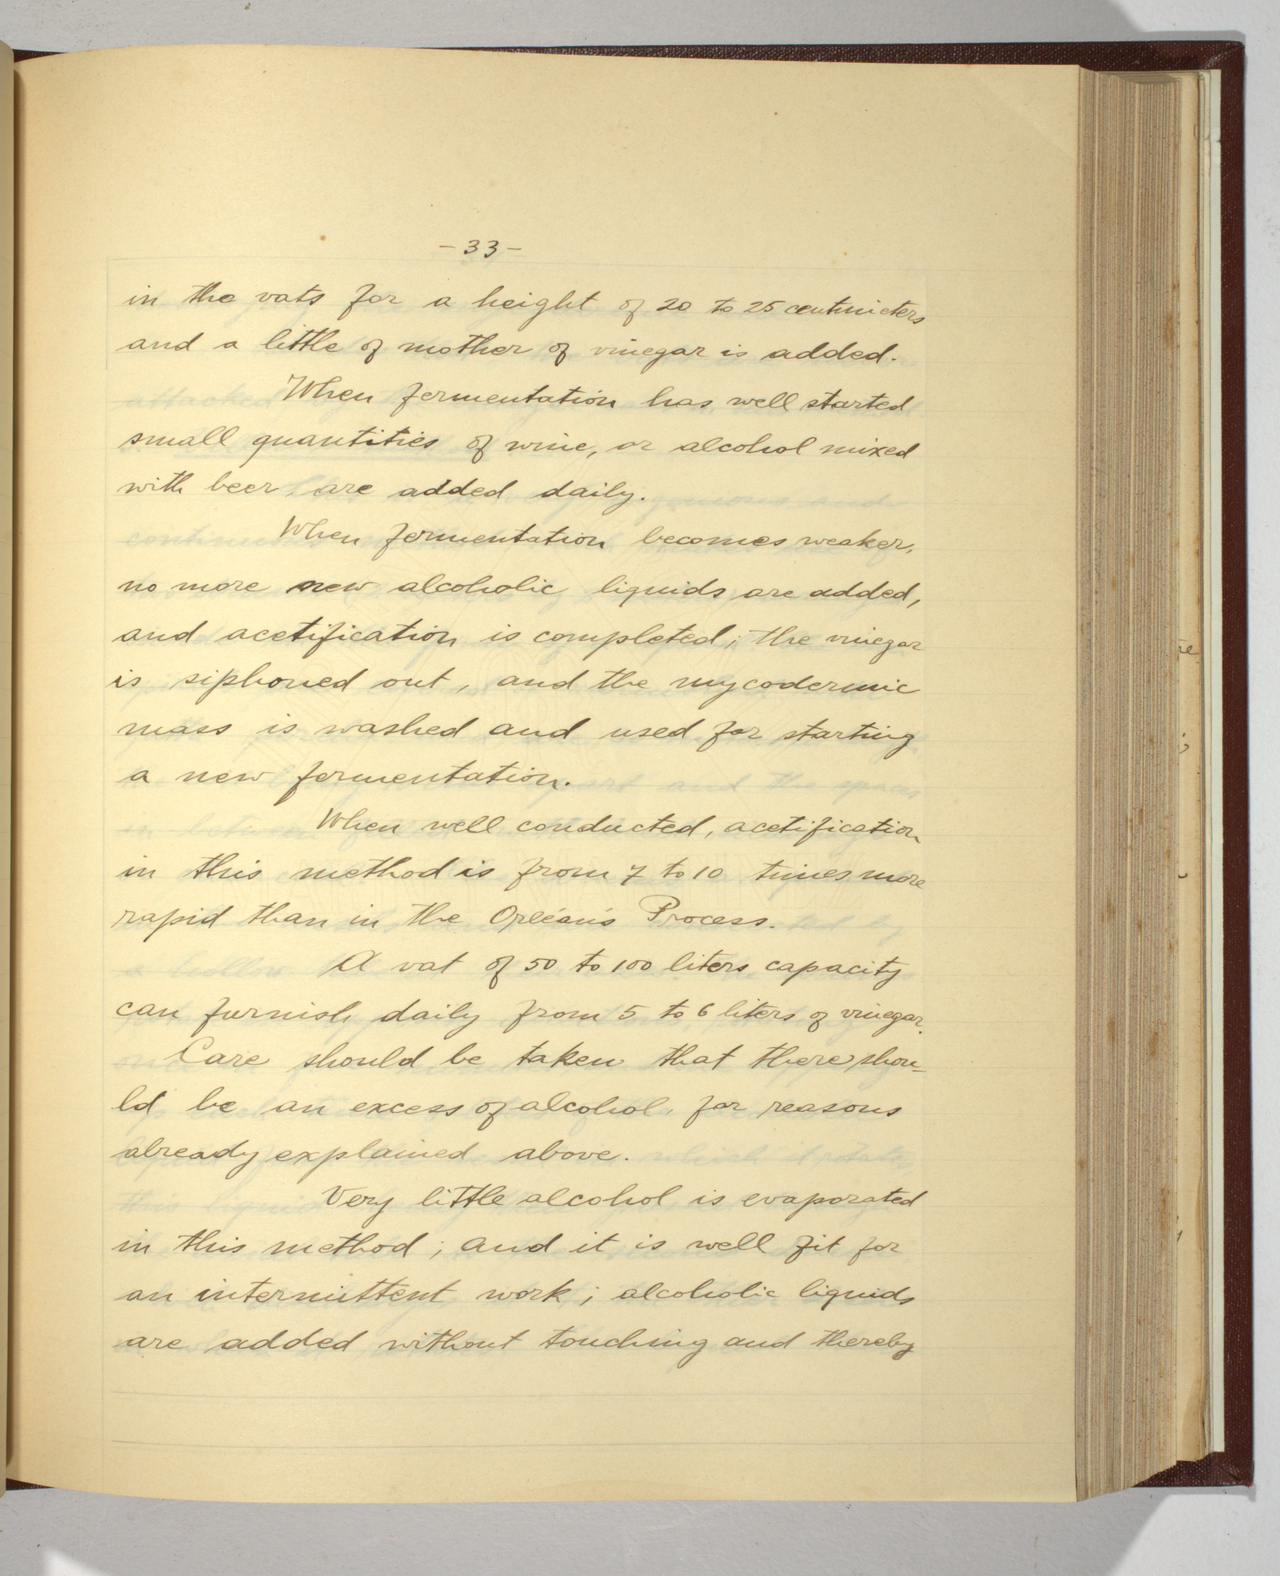 -33-
in the vats for a height of 20 to 25 centimeters
and a little of mother of vinegar is added.
When fermentation has well started
small quantities of wine, or alcohol mixed
with beer, are added daily.
When fermentation becomes weaker,
no more new alcoholic liquids are added,
and acetification is completed; the vinegar
is siphoned out, and the mycodermic
mass is washed and used for starting
a new fermentation.
When well conducted, acetification
in this method is from 7 to 10 times more
rapid than in the Orléans Process.
A vat of 50 to 100 liters capacity
can furnish daily from 5 to 6 liters of vinegar.
Care should be taken that there shou-
ld be an excess of alcohol, for reasons
already explained above.
Very little alcohol is evaporated
in this method; and it is well fit for
an intermittent work; alcoholic liquids
are added without touching and thereby